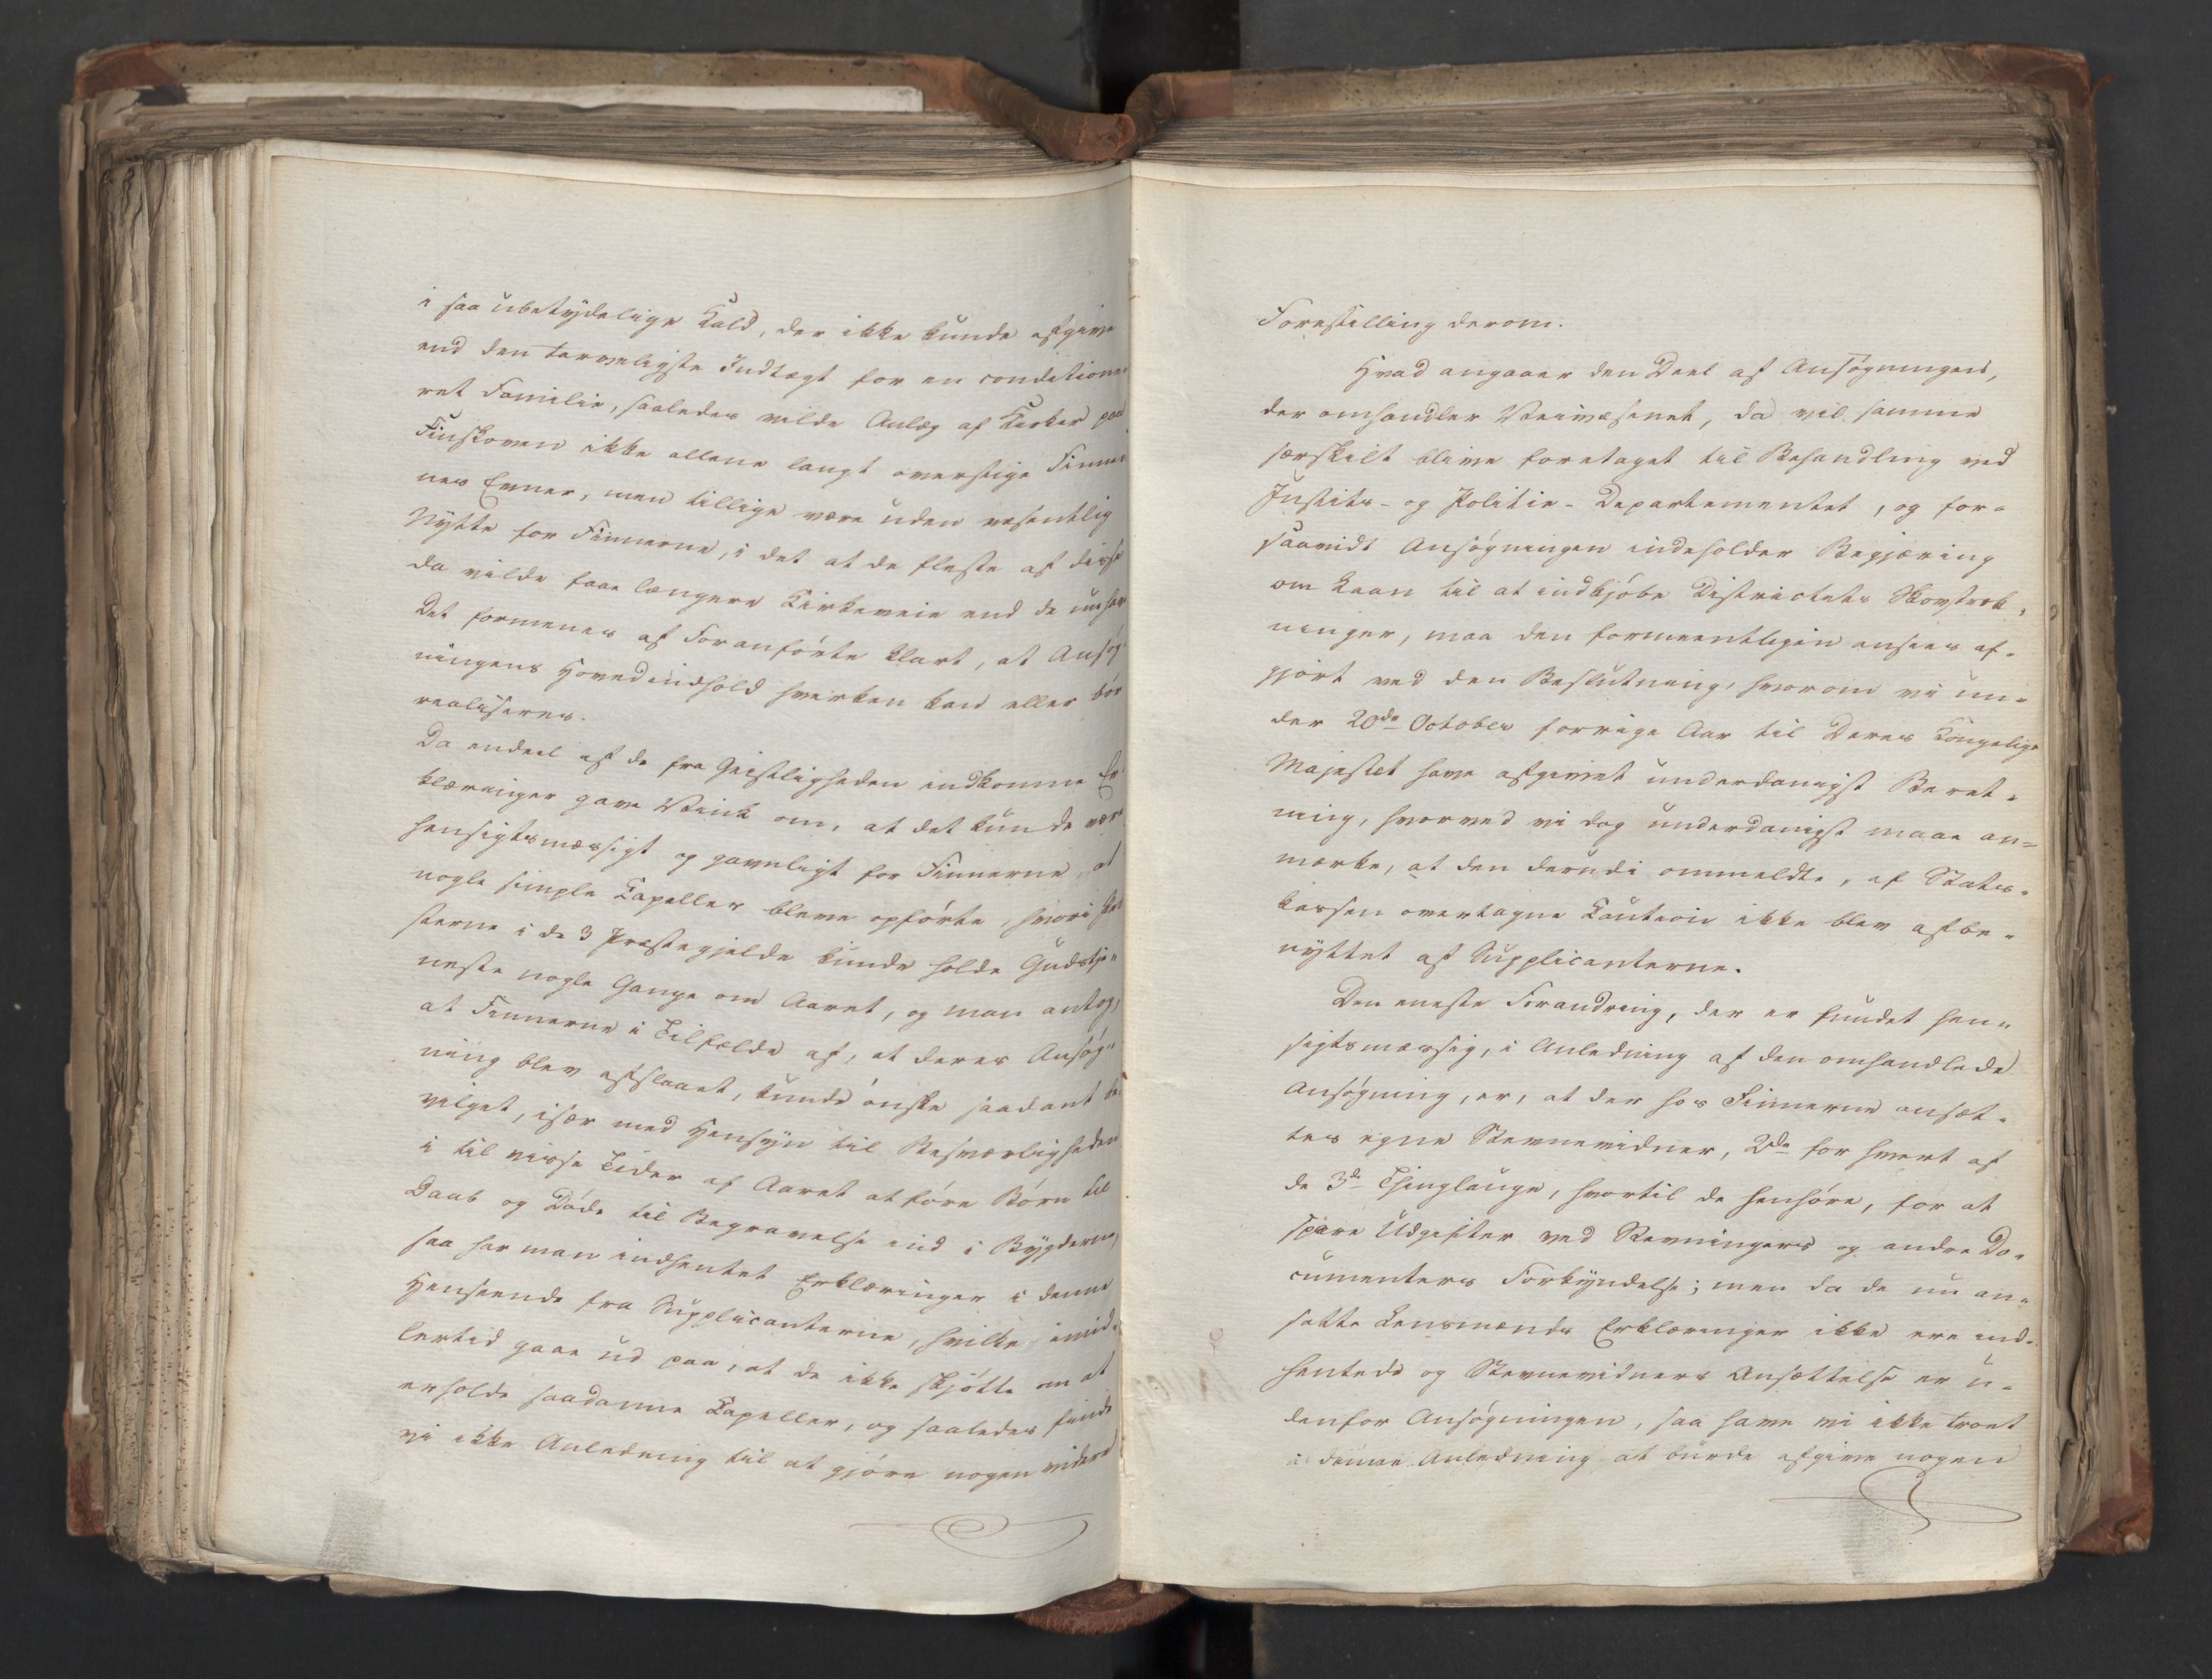 i saa ubetydelige Kald, der ikke kunde afgive
end den tarveligste Indtægt for en conditione-
ret Familie, saaledes vilde Anlæg af Kirker paa
Finskoven ikke allene langt overstige Finner-
nes Evner, men tillige være uden væsentlig
Nytte for Finnerne, i det at de fleste af disse
da vilde faae længere Kirkeveie end de nu have
Det formenes af Foranførte klart, at Ansøg-
ningens Hovedindhold hverken kan eller bør
realiseres.
Da endeel af de fra Geistligheden indkomne Er-
klæringer gave Vink om, at det kunde være
hensigtsmæssigt og gavnligt for Finnerne, at
nogle simple Capeller bleve opførte, hvori Præ-
sterne i de 3 Præstegjelde kunde holde Gudstje-
neste nogle Gange om Aaret, og man antog,
at Finnerne i Tilfælde af, at deres Ansøg-
ning blev afslaaet, kunde ønske saadant be-
vilget, især med Hensyn til Besværligheden
i til visse Tider af Aaret at føre Børn til
Daab og Døde til Begravelse ind i Bygderne,
saa har man indhentet Erklæringer i denne
Henseende fra Supplicanterne, hvilke imid-
lertid gaae ud paa, at de ikke skjøtte om at
erholde saadanne Capeller, og saaledes finde
vi ikke Anledning til at gjøre nogen videre
Forestilling derom.
Hvad angaaer den Deel af Ansøgningen,
der omhandler Veivæsenet, da vil samme
særskilt blive foretaget til Behandling ved
Justits- og Politie-Departementet, og for-
saavidt Ansøgningen indeholder Begjæring
om Laan til at indkjøbe Districtets Skovstræk-
ninger, maa den formeentligen ansees af-
gjort ved den Beslutning, hvorom vi un-
der 20de October forrige Aar til Deres Kongelige
Majestæt have afgivet underdanigst Beret-
ning, hvorved vi dog underdanigst maae an-
mærke, at den derudi ommeldte, af Stats-
kassen overtagne Caution ikke blev afbe-
nyttet af Supplicanterne.
Den eneste Forandring, der er fundet hen-
sigtsmæssig, i Anledning af den omhandlede
Ansøgning, er, at der hos Finnerne ansæt-
tes egne Stevnevidner, 2de for hvert af
de 3de Thinglauge, hvortil de henhøre, for at
spare Udgifter ved Stevningers og andre Do-
cumenters Forkyndelse; men da de nu an-
satte Lensmænds Erklæringer ikke ere ind-
hentede og Stevnevidners Ansættelse er u-
denfor Ansøgningen, saa have vi ikke troet
i denne Anledning at burde afgive nogen